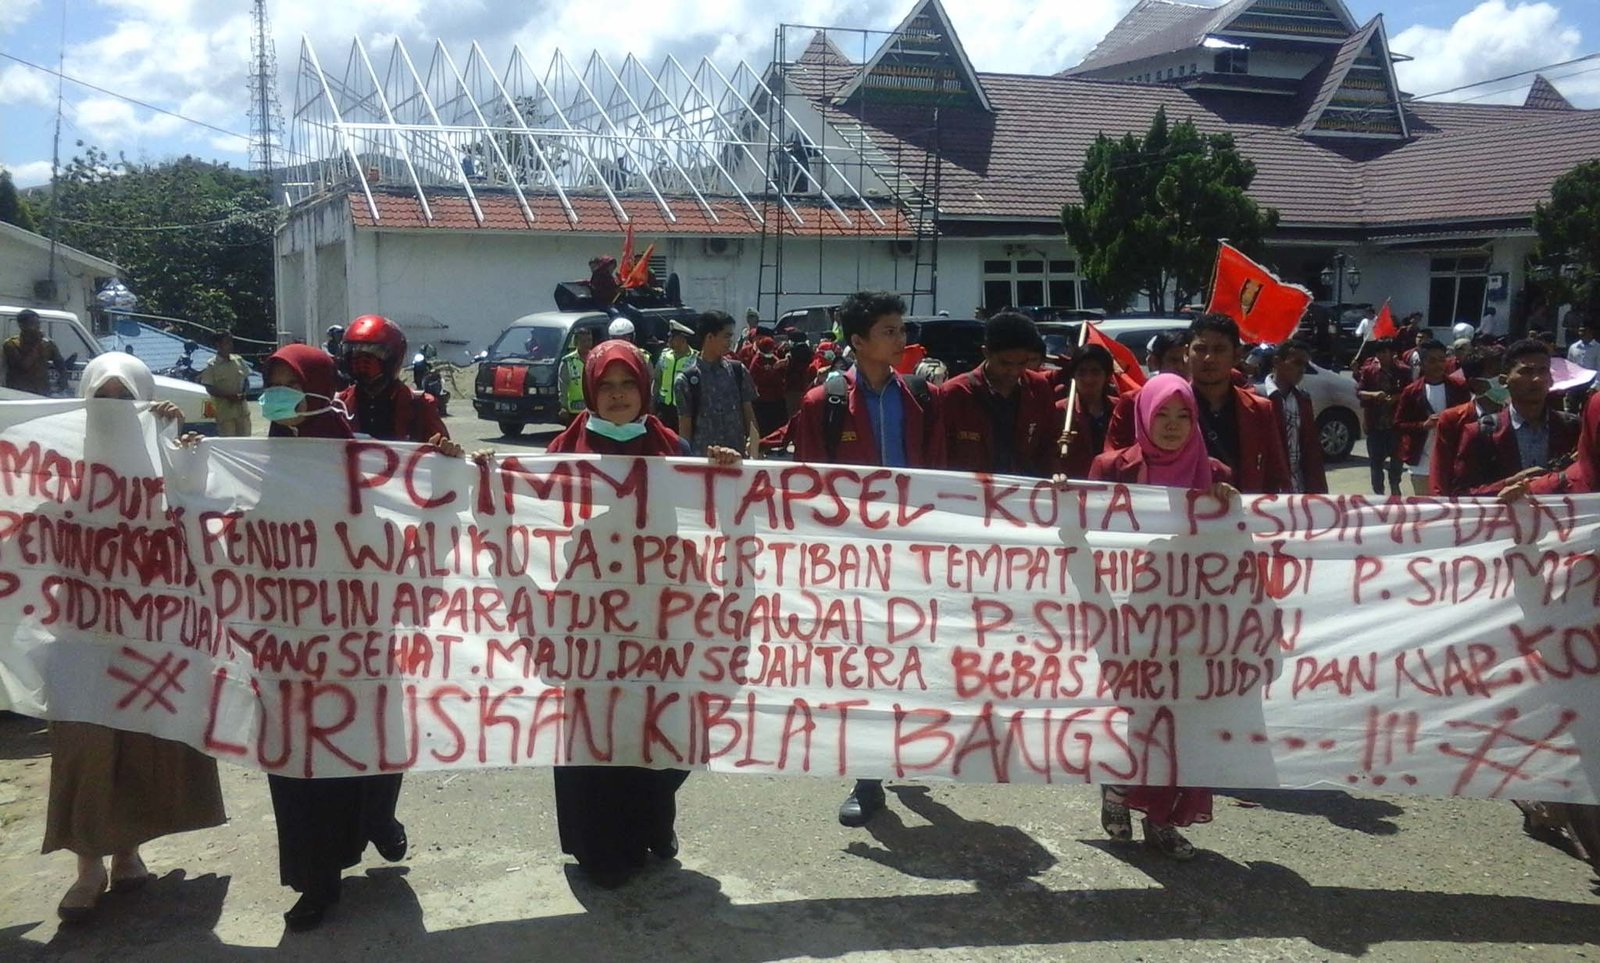 PC IMM TAPSEL-KOTA P.SIDIMPUAN
PENUH WALIKOTA: PENERTIBAN TEMPAT HIBURAN DI P.SIDIMP
DISIPLIN APARATUR PEGAWAI DI P.SIDIMPUAN
P.SIDIMPUAN YANG SEHAT. MAJU. DAN SEJAHTERA BEBAS DARI JUDI DAN NARKO
# LURUSKAN KIBLAT BANGSA ..---. !!! #